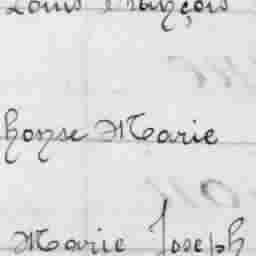 Louis François
honse Marie
Marie Joseph